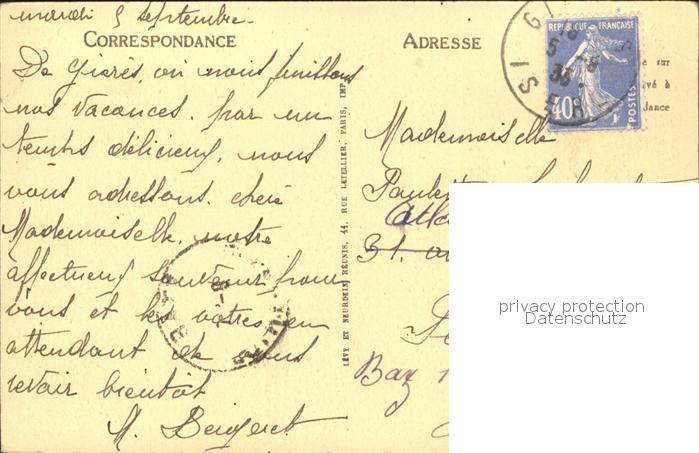 mardi 5 septembre.
CORRESPONDANCE
De Gières, où nous finissons
nos vacances, par un
temps délicieux, nous
vous adressons, chère
Mademoiselle, notre
affectueux souvenir pour
vous et les vôtres, en
attendant de vous
revoir bientôt
M. Bergeret
LÉVY ET NEURDEIN RÉUNIS, 44, RUE LETELLIER, PARIS, IMP.
ADRESSE
RÉPUBLIQUE FRANÇAISE
40c
POSTES
G
5 -9
33
ISÈRE
e sur
vé à
dance
Mademoiselle
31, a
Baz
privacy protection
Datenschutz